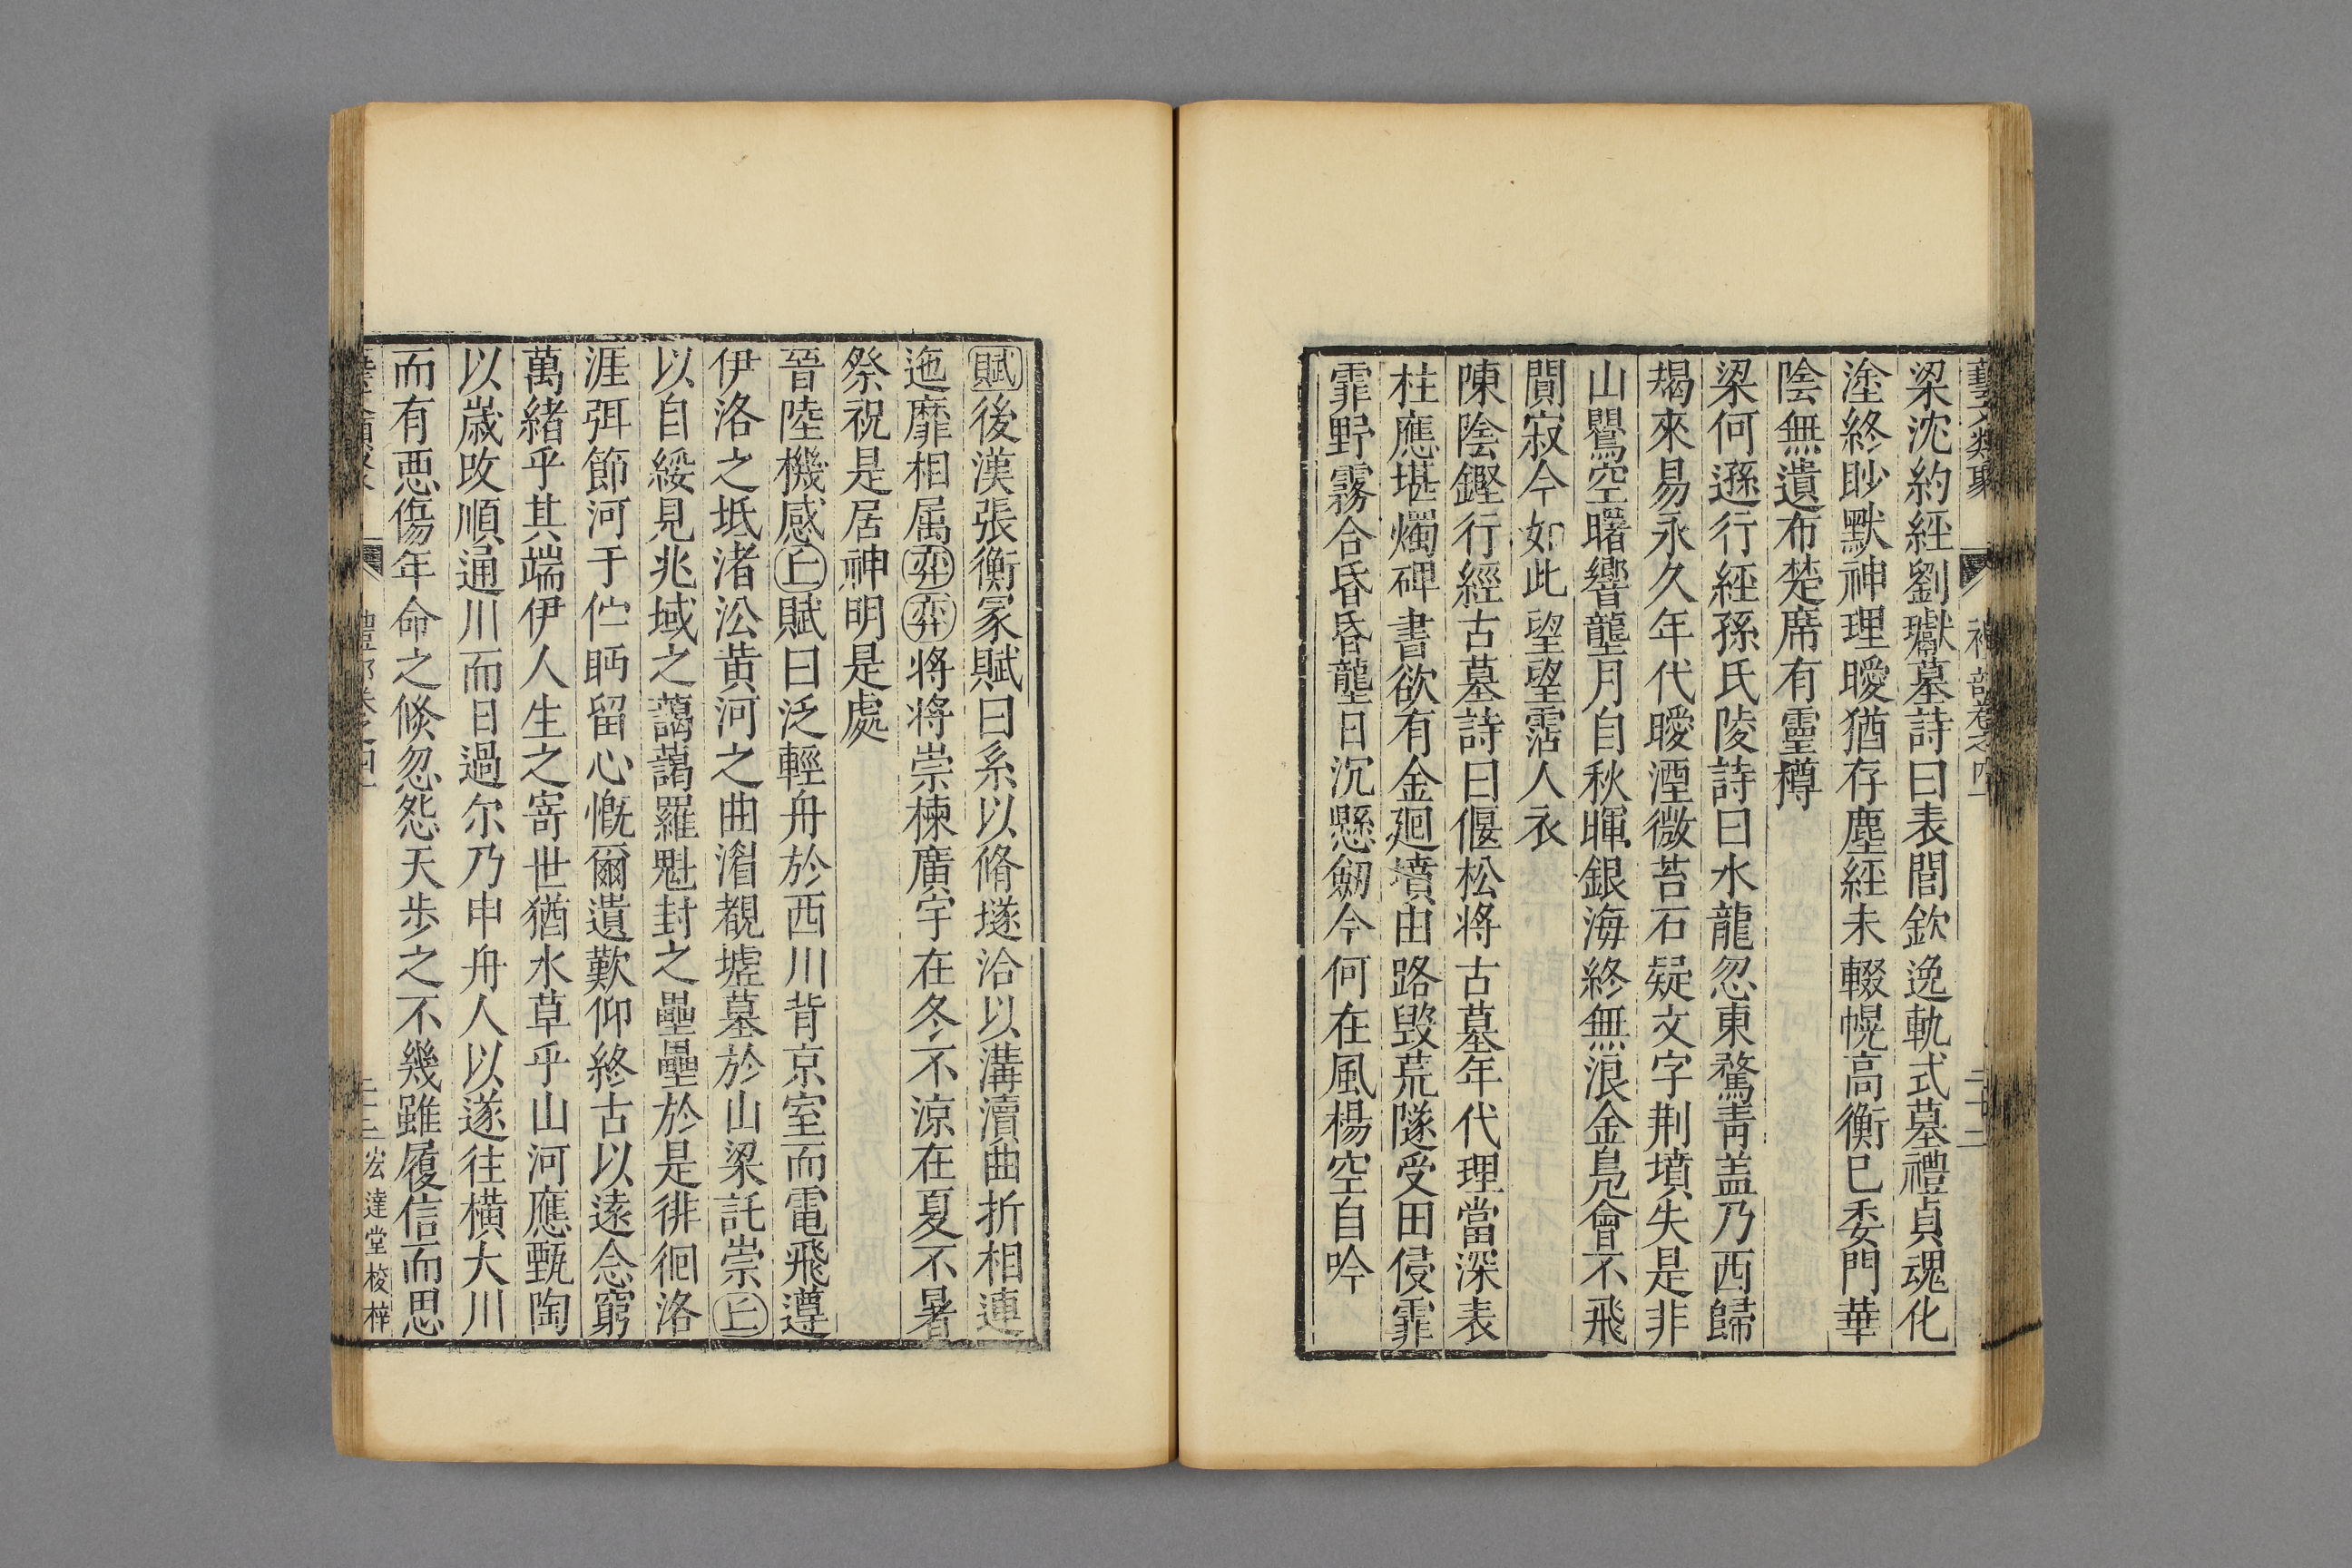 藝文類聚 禮部卷之四十 二十二
梁沈約經劉瓛墓詩曰表閭欽逸軌式墓禮貞魂化
塗終眇默神理曖猶存塵經未輟幌高衡巳委門華
陰無遺布楚席有靈樽
梁何遜行經孫氏陵詩曰水龍忽東騖青盖乃西歸
朅來易永久年代曖湮微苔石疑文字荆墳失是非
山鸎空曙響壟月自秋暉銀海終無浪金鳧會不飛
閴寂今如此望望霑人衣
陳陰鏗行經古墓詩曰偃松将古墓年代理當深表
柱應堪燭碑書欲有金廻墳由路毀荒隧受田侵霏
霏野霧合昏昏壟日沉懸劒今何在風楊空自吟
賦後漢張衡冢賦曰系以脩墜洽以溝瀆曲折相連
迤靡相属弈弈将将崇棟廣宇在冬不涼在夏不暑
祭祝是居神明是處
晉陸機感丘賦曰泛輕舟於西川背京室而電飛遵
伊洛之坻渚㳂黄河之曲湄覩墟墓於山梁託崇丘
以自綏見兆域之藹藹羅魁封之壘壘於是徘徊洛
涯弭節河干伫眄留心慨爾遺歎仰終古以遠念窮
萬緒乎其端伊人生之寄世猶水草乎山河應甄陶
以嵗攺順通川而日過尔乃申舟人以遂往橫大川
而有悪傷年命之倏忽怨天步之不幾雖履信而思
禮部卷之四十 二十三 宏達堂校梓